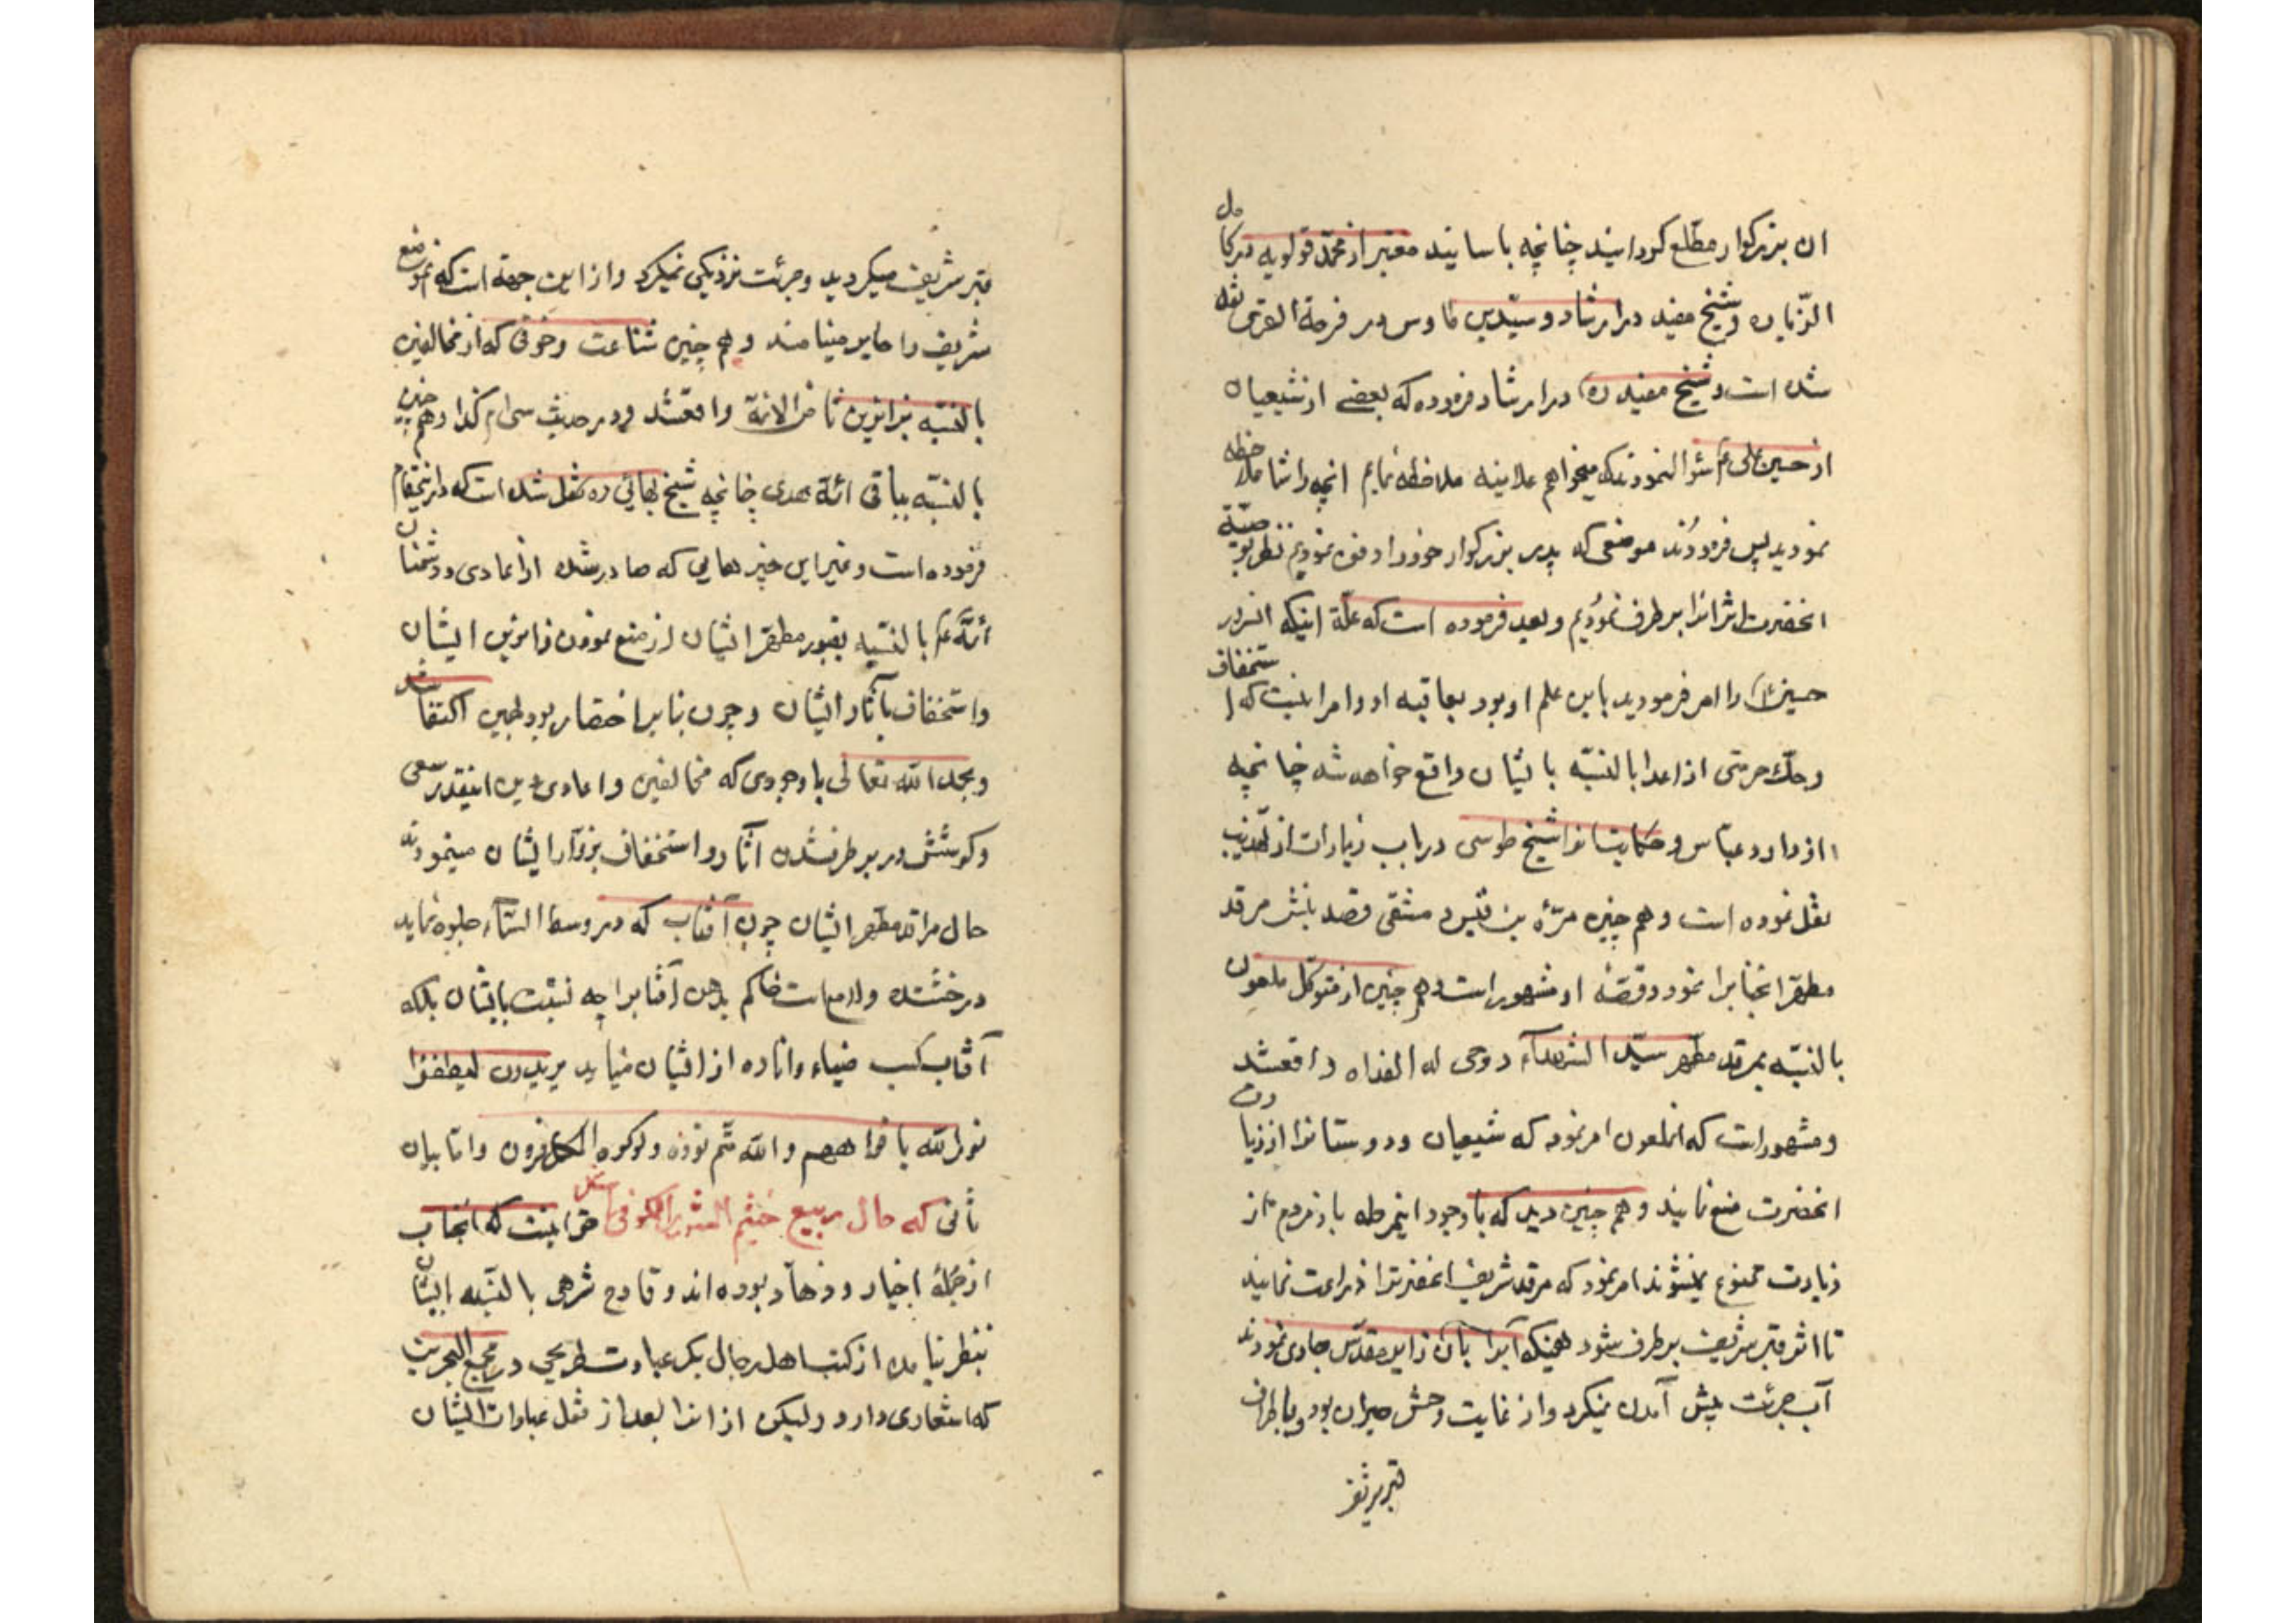 ان بزرکوار مطلع کردانیند چنانچه باسانید معتبر از محمد قولویه در کامل
الزیارت و شیخ مفید در ارشاد و سید بن طاوس در فرحة الغری نقل
شده است و شیخ مفید ره در ارشاد فرموده که بعضی از شیعیان
از حسین علی ع سئوال نمودند که میخواهم علانیه ملاحظه نمایم انچه را شما ملاحظه
نمودید پس فرمودند موضعی که پدر بزرکوار خود را دفن نمودیم نظر بوصیة
انحضرت اثر انرا بر طرف نمودیم و بعد فرموده است که علة اینکه انسرور
حسین را امر فرمودند باین علم او بود بعاقبه او و امر اینست که استخفاف
و هتک حرمتی از اعدا بالنسبه بایشان واقع خواهد شد چنانچه
از داود عباس و حکایتانرا شیخ طوسی در باب زیارات از تهذیب
نقل نموده است و هم چنین مرّة بن قیس د مشقی قصد نبش مرقد
مطهر انجنابرا نمود و قصّه او مشهور است و هم چنین از متوکل ملعون
بالنسبه بمرقد مطهر سید الشهدآء روحی له الفداه واقعشد
و مشهور است که انملعون امر نمود که شیعیان و دوستانرا از زیارت
انحضرت منع نمایند و هم چنین دید که با وجود اینمرحله باز مردم از
زیارت ممنوع نمیشوند امر نمود که مرقد شریف انحضرترا زراعت نمایند
تا اثر قبر شریف بر طرف شود همینکه آبرا بان زمین مقدّس جاری نمودند
آب جرئت پیش آمدن نمیکرد و از غایت وحش حیران بود و باطراف
قبر شریف
قبر شریف میکردید و جرئت نزدیکی نمیکرد و از این جهة است که موضع
شریف را حایر مینامند و هم چنین شناعت و خوفی که از مخالفین
بالنسبه بزائرین ثامن الائمة واقعشد و در حدیث سی ام کذا و هم چنین
بالنسبه بباقی ائمة هدی چنانچه شیخ بهائی ره نقل شده است که در اینمقام
فرموده است و غیر این چیزهایی که صادر شده از اعادی و دشمنان
ائمّه ع بالنسبه بقبور مطهر ایشان از منع نمودن زائرین ایشان
و استخفاف بآثار ایشان و چون بنا بر اختصار بود بهمین اکتفا شد
و بحمد الله تعالی با وجودی که مخالفین و اعادی دین اینقدر سعی
و کوشش در بر طرفشدن آثار و استخفاف بزوّار ایشان مینمودند
حال مراقد مطهر ایشان چون آفتاب که در وسط السمآء جلوه نماید
درخشنده و لامعات حاکم بدهن آفتابرا چه نسبت بایشان بلکه
آفتاب کسب ضیاء و اناره از ایشان مینماید یریدون لیطفئوا
نور الله بافواههم و الله متم نوره ولو کره الکافرون و اما بیان
ثانی که حال ربیع خثیم الثوری الکوفی حقر اینست که انجناب
از جملهٔ اخیار و زهاد بوده اند و قادح شرعی بالنسبه ایشان
بنظر نیامده از کتب اهل رجال بکر عبارت طریحی در مجمع البحرین
که اشعاری دارد ولیکن از انرا بعد از نقل عبارات ایشان